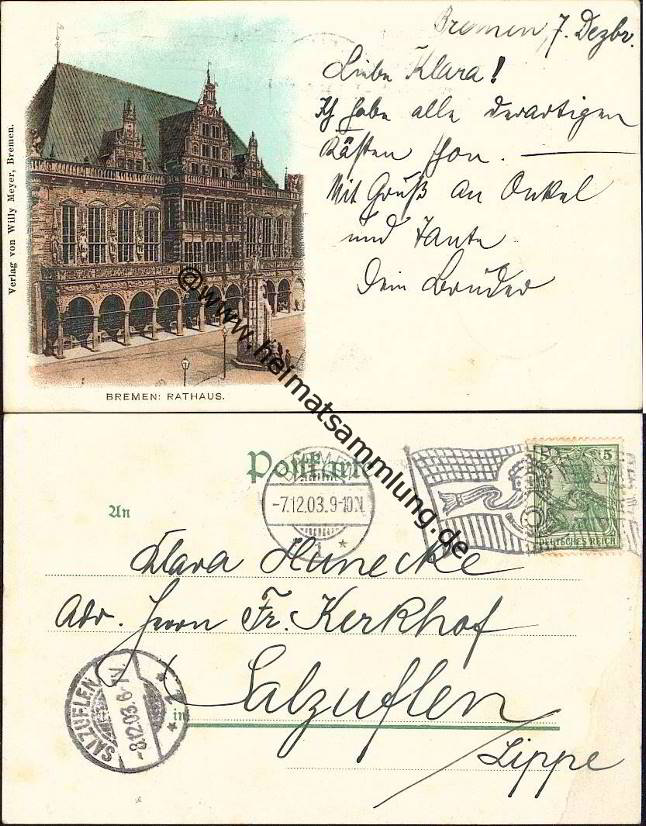 Bremen, 7. Dezbr.
Liebe Klara!
Ich habe alle derartigen
Kästen schon.
Mit Gruß an Onkel
und Tante
Dein Bruder
Verlag von Willy Meyer, Bremen.
BREMEN: RATHAUS.
© www.heimatsammlung.de
Postkarte
BREMEN
-7.12.03.9-10N.
1
5
DEUTSCHES REICH
An
Klara Hunecke
Adr. Herrn Fr. Kerkhof
in Salzuflen
Lippe
SALZUFLEN
-8.12.03.6-7V.